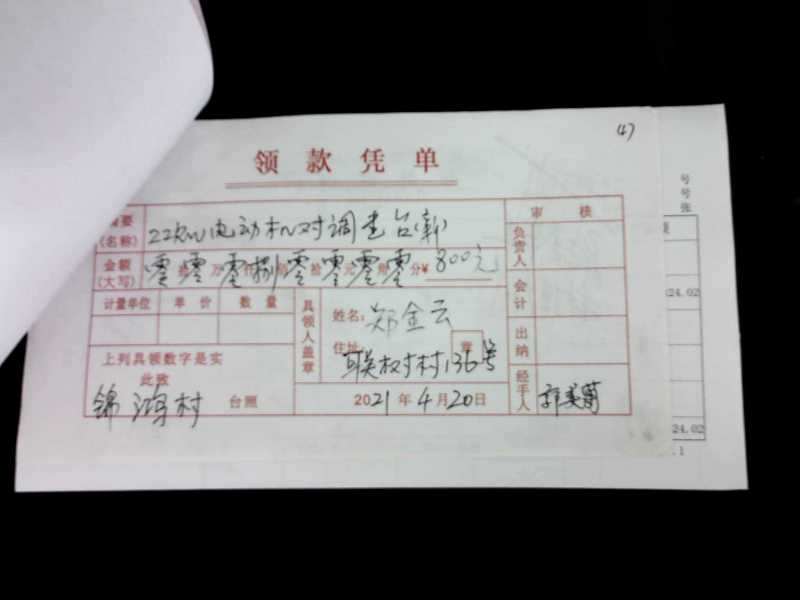 47
领款凭单
号
号
张
摘要(名称) 22KW电动机对调壹台(新) 审核
金额(大写) 零拾零万零仟捌佰零拾零元零角零分¥ 800元
负责人
计量单位 单价 数量 具领人盖章 姓名:郑金云 会计
024.02
住址: 章 联权村136号 出纳
上列具领数字是实
此致
锦鸿村 台照 2021年4月20日 经手人
024.02
.1